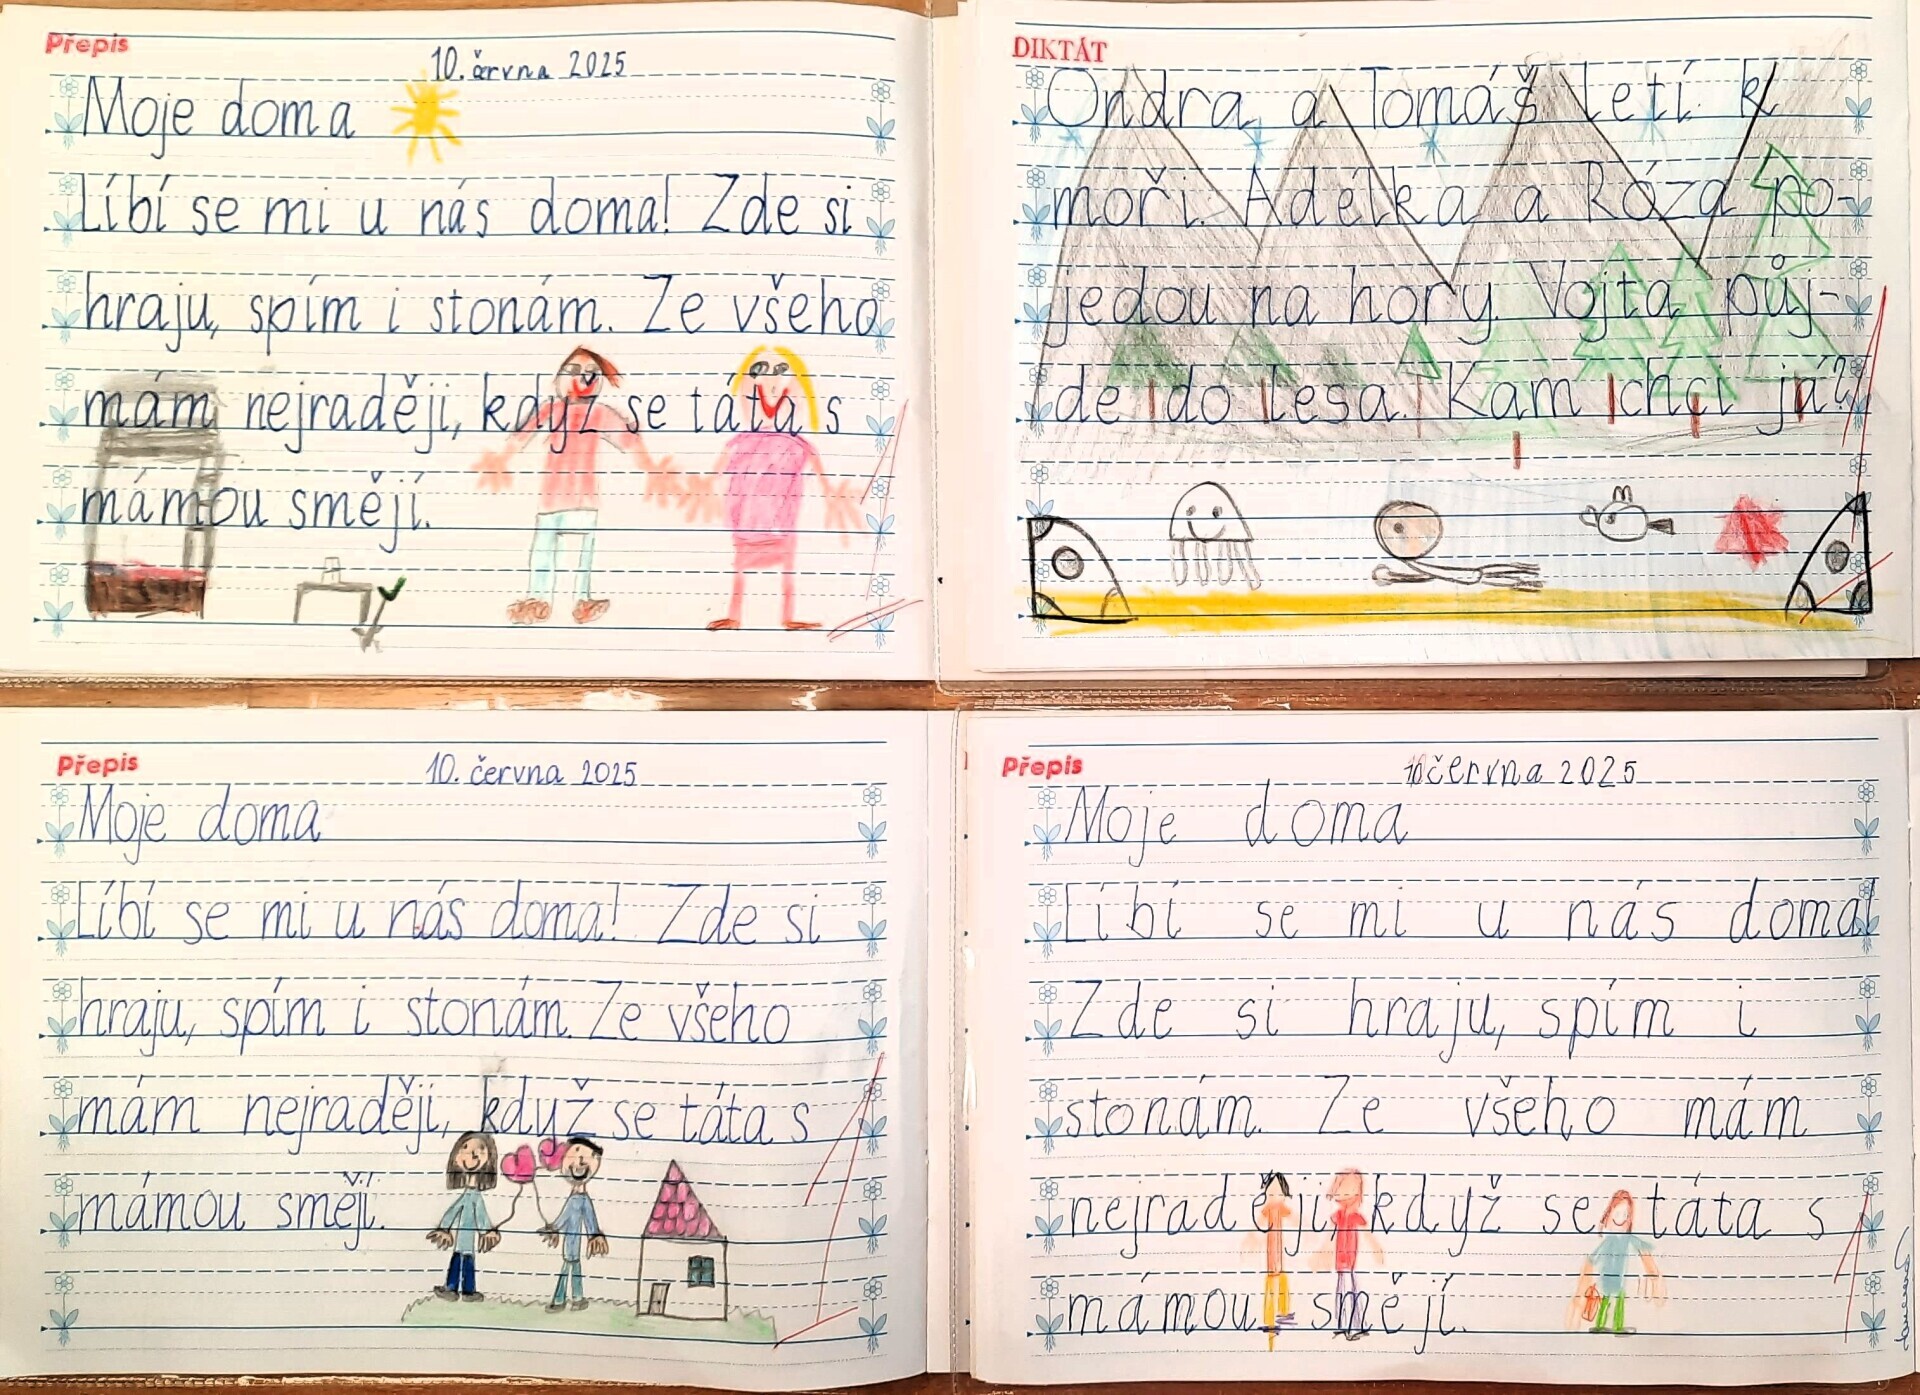 Přepis
10. června 2025
Moje doma
Líbí se mi u nás doma! Zde si
hraju, spím i stonám. Ze všeho
mám nejraději, když se táta s
mámou smějí.
DIKTÁT
Ondra a Tomáš letí k
moři. Adélka a Róza po-
jedou na hory. Vojta půj-
de do lesa. Kam chci já?
Přepis
10. června 2025
Moje doma
Líbí se mi u nás doma! Zde si
hraju, spím i stonám. Ze všeho
mám nejraději, když se táta s
mámou smějí.
Přepis
10 června 2025
Moje doma
Líbí se mi u nás doma!
Zde si hraju, spím i
stonám. Ze všeho mám
nejraději, když se táta s
mámou smějí.